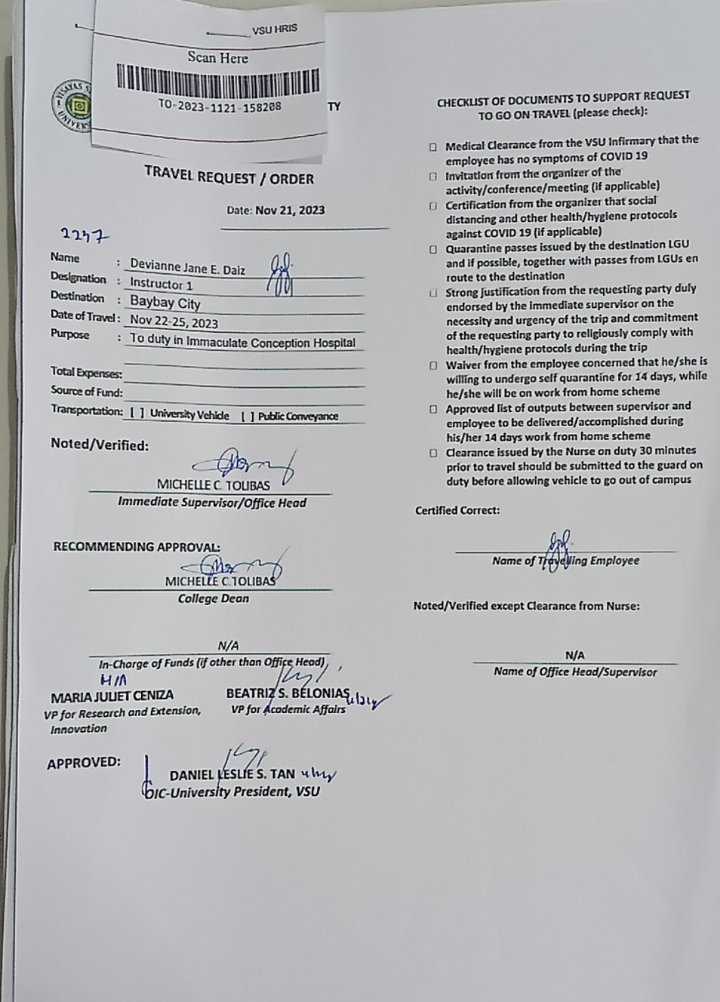 VSU HRIS
Scan Here
TO-2023-1121-158208
TY
VISAYAS S
UNIVERS
TRAVEL REQUEST / ORDER
Date: Nov 21, 2023
2247
Name : Devianne Jane E. Daiz
Designation : Instructor 1
Destination : Baybay City
Date of Travel : Nov 22-25, 2023
Purpose : To duty in Immaculate Conception Hospital
Total Expenses:
Source of Fund:
Transportation: [ ] University Vehicle [ ] Public Conveyance
Noted/Verified:
MICHELLE C. TOLIBAS
Immediate Supervisor/Office Head
RECOMMENDING APPROVAL:
MICHELLE C. TOLIBAS
College Dean
N/A
In-Charge of Funds (if other than Office Head)
N/A
MARIA JULIET CENIZA
VP for Research and Extension,
Innovation
BEATRIZ S. BELONIAS
VP for Academic Affairs
APPROVED:
DANIEL LESLIE S. TAN
OIC-University President, VSU
CHECKLIST OF DOCUMENTS TO SUPPORT REQUEST
TO GO ON TRAVEL (please check):
☐ Medical Clearance from the VSU Infirmary that the
employee has no symptoms of COVID 19
☐ Invitation from the organizer of the
activity/conference/meeting (if applicable)
☐ Certification from the organizer that social
distancing and other health/hygiene protocols
against COVID 19 (if applicable)
☐ Quarantine passes issued by the destination LGU
and if possible, together with passes from LGUs en
route to the destination
☐ Strong justification from the requesting party duly
endorsed by the immediate supervisor on the
necessity and urgency of the trip and commitment
of the requesting party to religiously comply with
health/hygiene protocols during the trip
☐ Waiver from the employee concerned that he/she is
willing to undergo self quarantine for 14 days, while
he/she will be on work from home scheme
☐ Approved list of outputs between supervisor and
employee to be delivered/accomplished during
his/her 14 days work from home scheme
☐ Clearance issued by the Nurse on duty 30 minutes
prior to travel should be submitted to the guard on
duty before allowing vehicle to go out of campus
Certified Correct:
Name of Travelling Employee
Noted/Verified except Clearance from Nurse:
N/A
Name of Office Head/Supervisor